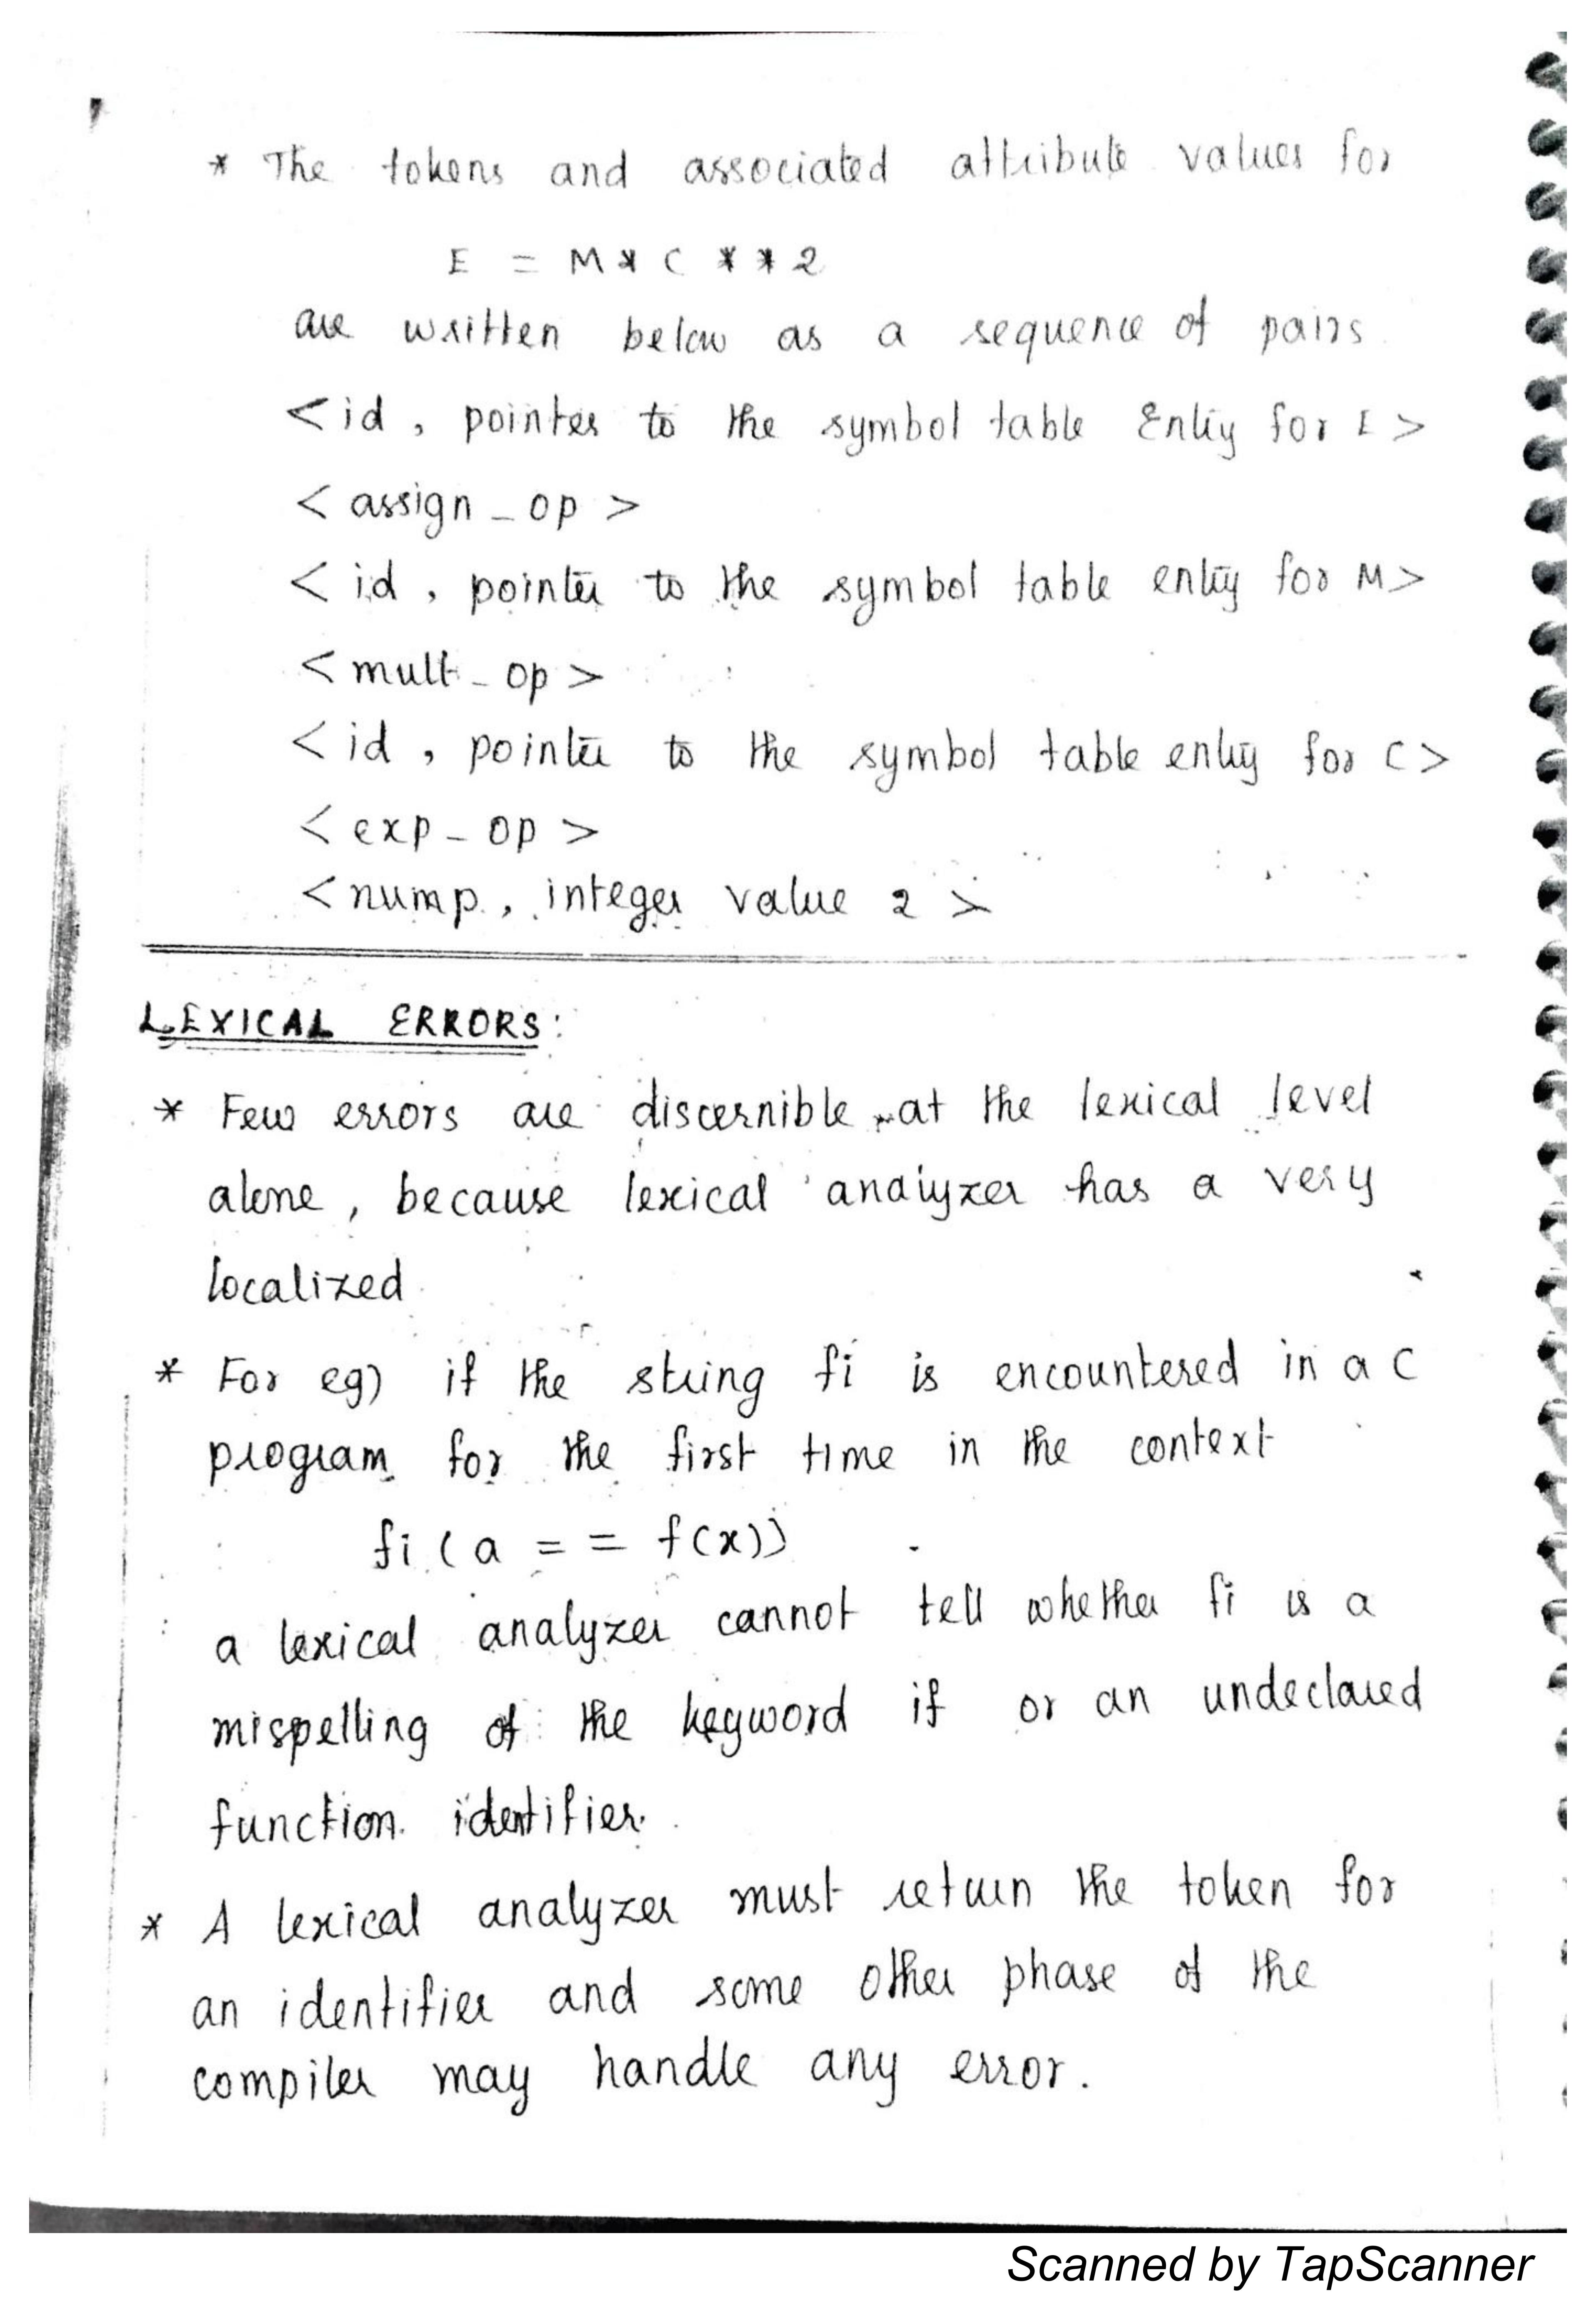 * The tokens and associated attribute values for
E = M * C * * 2
are written below as a sequence of pairs
< id , pointer to the symbol table Entry for E >
< assign _ op >
< id , pointer to the symbol table entry for M >
< mult _ op >
< id , pointer to the symbol table entry for C >
< exp _ op >
< nump , integer value 2 >
LEXICAL ERRORS :
* Few errors are discernible at the lexical level
alone , because lexical analyzer has a very
localized
* For eg) if the string fi is encountered in a C
program for the first time in the context
fi ( a = = f(x))
a lexical analyzer cannot tell whether fi is a
mispelling of the keyword if or an undeclared
function identifier.
* A lexical analyzer must return the token for
an identifier and some other phase of the
compiler may handle any error.
Scanned by TapScanner